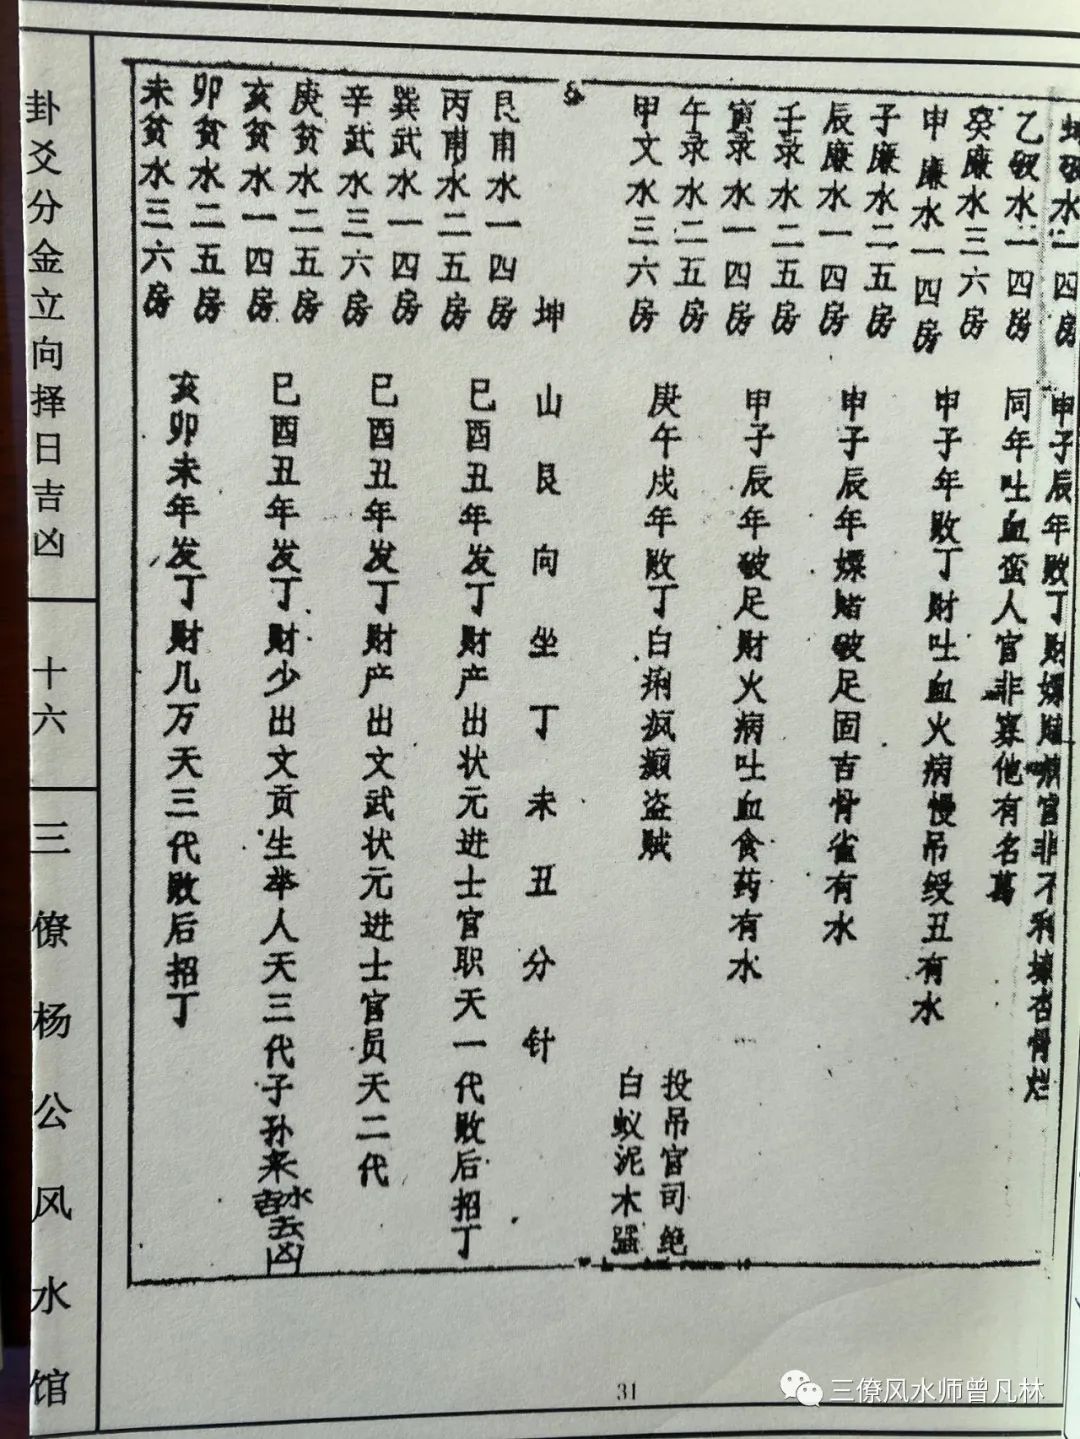 坤破水一四房
乙破水一四房
癸廉水三六房
申廉水一四房
子廉水二五房
辰廉水一四房
壬录水二五房
寅录水一四房
午录水二五房
甲文水三六房
申子辰年败丁财嫖赌病官非不利
骨烂
同年吐血蛮人官非寡他有名葛
申子年败丁财吐血火病慢吊绶丑有水
申子辰年嫖赌破足固吉骨雀有水
甲子辰年破足财火病吐血食药有水
庚午戌年败丁白痢疯癫盗贼
投吊官司绝
白蚁泥木强
坤山艮向坐丁未丑分针
艮甫水一四房
丙甫水二五房
巽武水一四房
辛武水三六房
庚贫水二五房
亥贫水一四房
卯贫水二五房
未贫水三六房
巳酉丑年发丁财产出状元进士官职天一代败后招丁
巳酉丑年发丁财产出文武状元进士官员天二代
巳酉丑年发丁财少出文贡生举人天三代子孙来水吉去凶
亥卯未年发丁财几万天三代败后招丁
卦爻分金立向择日吉凶
十六
三僚杨公风水馆
31
三僚风水师曾凡林